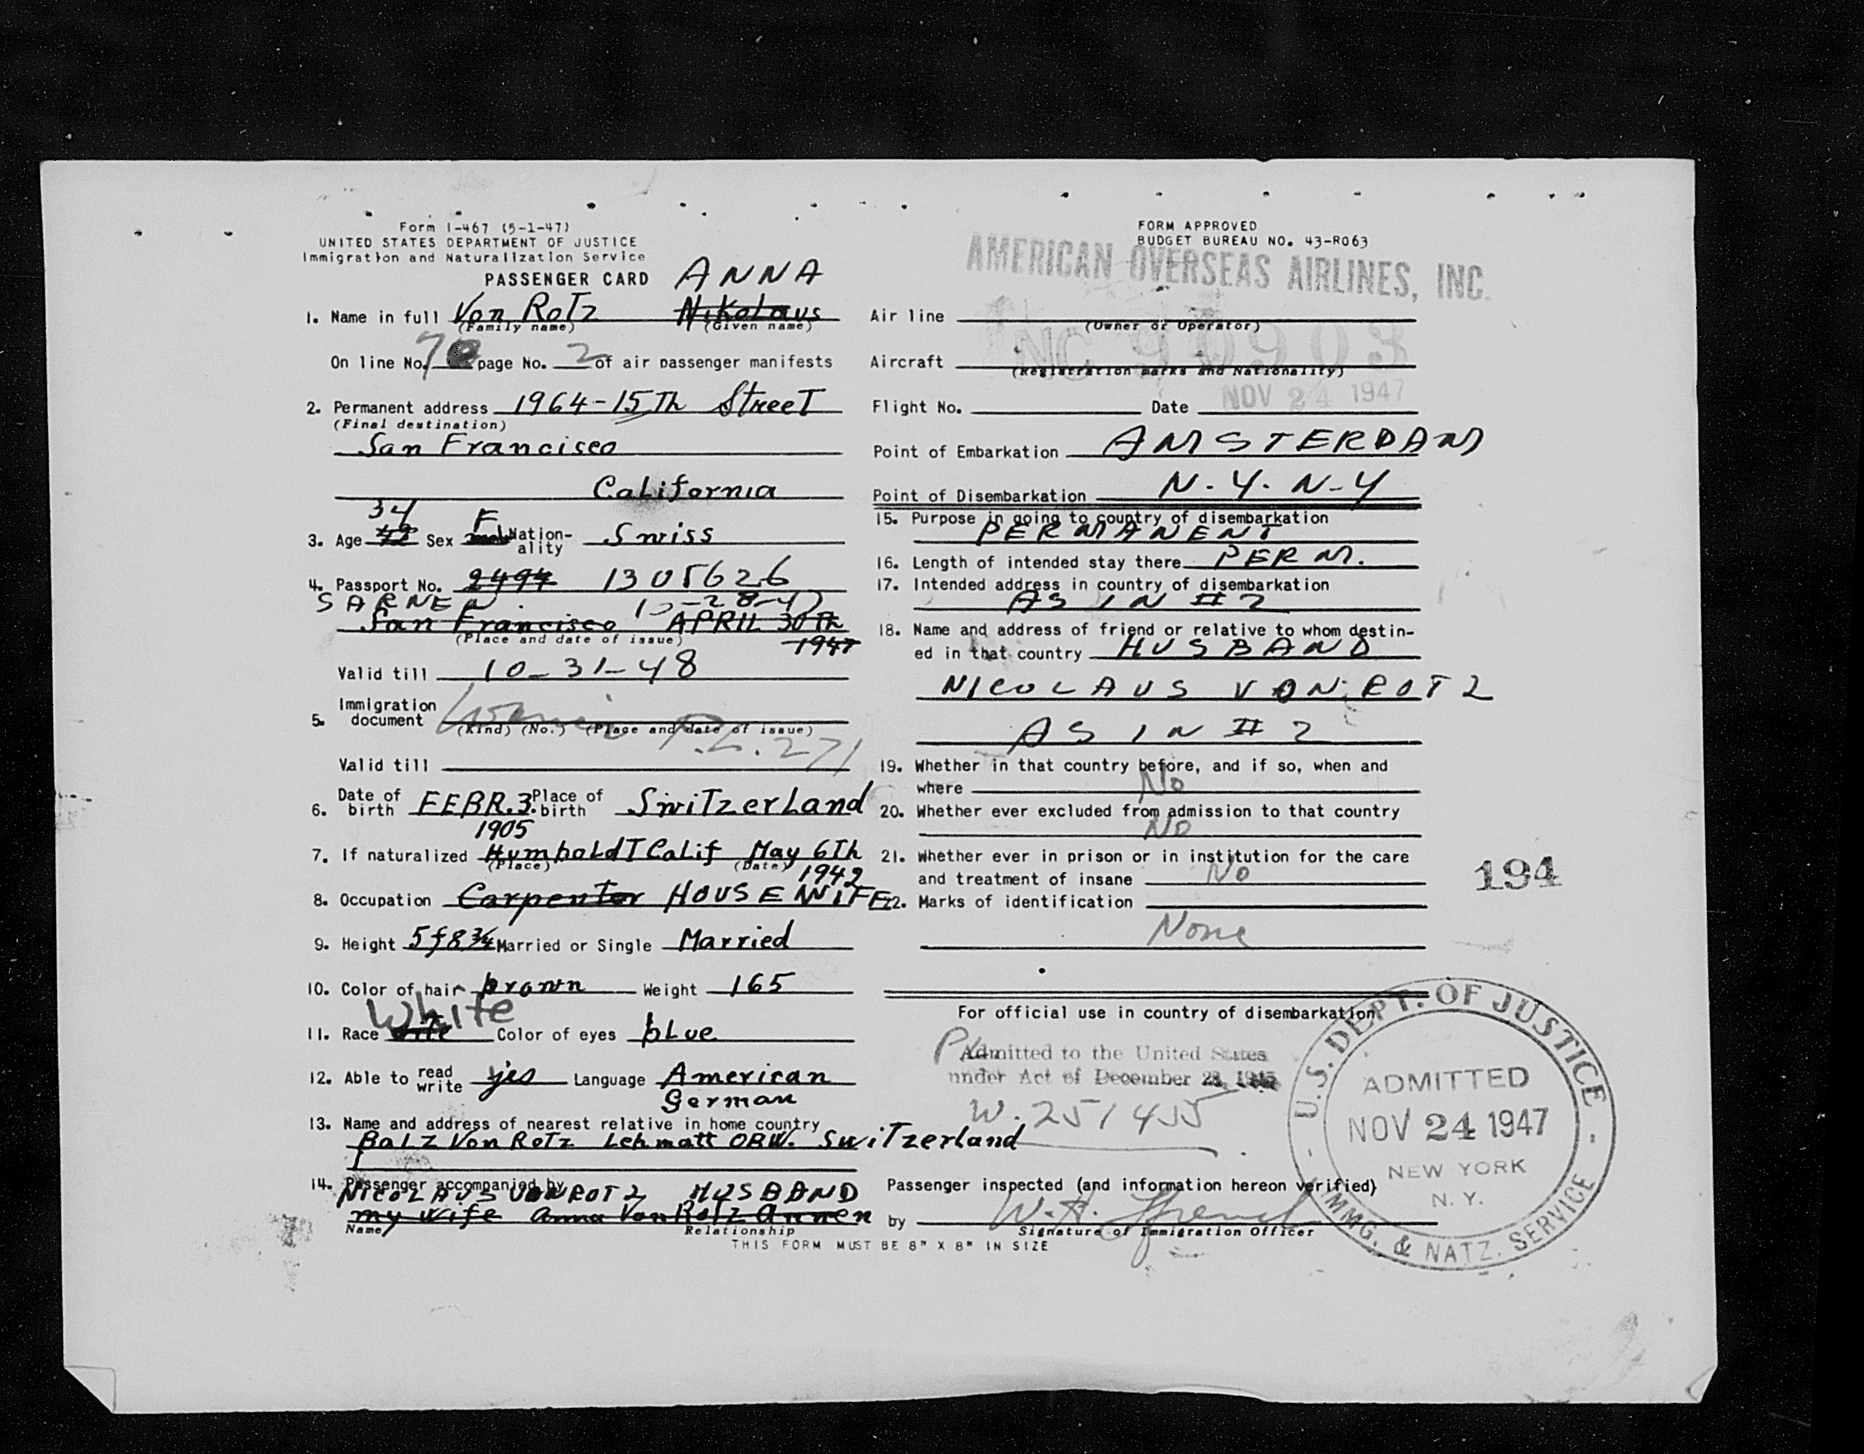 Form I-467 (5-1-47)
UNITED STATES DEPARTMENT OF JUSTICE
Immigration and Naturalization Service
PASSENGER CARD ANNA
1. Name in full Von Rotz Nikolaus
(Family name) (Given name)
On line No. 7 page No. 2 of air passenger manifests
2. Permanent address 1964-15Th Street
(Final destination)
San Francisco
California
34 F
3. Age 42 Sex Nation-ality Swiss
4. Passport No. 2494 1305626
SARNEN 10-28-47
San Francisco APRIL 30Th
(Place and date of issue) 1947
Valid till 10-31-48
5. Immigration document P.L. 271
(Kind) (No.) (Place and date of issue)
Valid till
6. Date of birth FEBR. 3. Place of birth SwiTzerLand
1905
7. If naturalized HumboLdT Calif May 6Th
(Place) (Date) 1942
8. Occupation Carpenter HOUSEWIFE
9. Height 5f8¾ Married or Single Married
10. Color of hair brown Weight 165
White
11. Race Color of eyes bLue
12. Able to read write yes Language American
German
13. Name and address of nearest relative in home country
Balz Von Rotz Lehmatt OBW. SwiTzerland
14. Passenger accompanied by
NICOLAUS VON ROTZ HUSBAND
my wife Anna Von Rotz Annen
Name Relationship
THIS FORM MUST BE 8" X 8" IN SIZE
FORM APPROVED
BUDGET BUREAU NO. 43-R063
AMERICAN OVERSEAS AIRLINES, INC.
Air line
(Owner or Operator)
NC 90903
Aircraft
(Registration marks and Nationality)
Flight No. Date NOV 24 1947
Point of Embarkation AMSTERDAM
Point of Disembarkation N.Y. N.Y
15. Purpose in going to country of disembarkation
PERMANENT
16. Length of intended stay there PERM.
17. Intended address in country of disembarkation
AS IN #2
18. Name and address of friend or relative to whom destin-
ed in that country HUSBAND
NICOLAUS VON ROTZ
AS IN #2
19. Whether in that country before, and if so, when and
where No
20. Whether ever excluded from admission to that country
No
21. Whether ever in prison or in institution for the care
and treatment of insane No
194
22. Marks of identification
None
For official use in country of disembarkation
Admitted to the United States
under Act of December 28, 1945
W.251455
Passenger inspected (and information hereon verified)
by W.H.
Signature of Immigration Officer
U.S. DEPT. OF JUSTICE
ADMITTED
NOV 24 1947
NEW YORK
N. Y.
IMMG. & NATZ. SERVICE